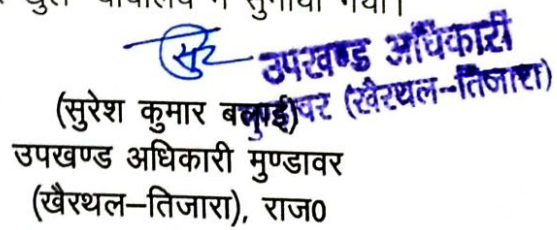 खुले न्यायालय में सुनाया गया।
उपखण्ड अधिकारी
मुण्डावर (खैरथल–तिजारा)
(सुरेश कुमार बलाई)
उपखण्ड अधिकारी मुण्डावर
(खैरथल–तिजारा), राज0